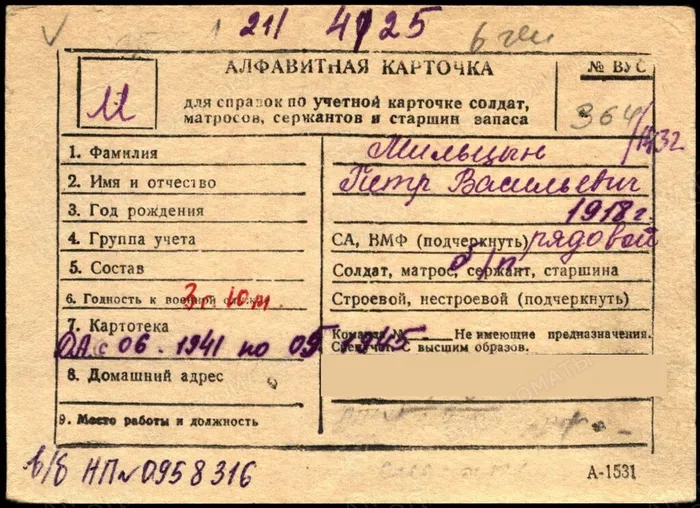 21 4/25 6
АЛФАВИТНАЯ КАРТОЧКА
№ ВУС
М
для справок по учетной карточке солдат,
матросов, сержантов и старшин запаса
364/
1. Фамилия Мильцын
2. Имя и отчество Петр Васильевич
3. Год рождения 1918 г.
4. Группа учета СА, ВМФ (подчеркнуть) рядовой
5. Состав Солдат, матрос, сержант, старшина б/п
6. Годность к военной Строевой, нестроевой (подчеркнуть)
7. Картотека Команда № Не имеющие предназначения.
с 06. 1941 по 05. 1945 С высшим образов.
8. Домашний адрес
9. Место работы и должность
в/б НП № 0958316
А-1531